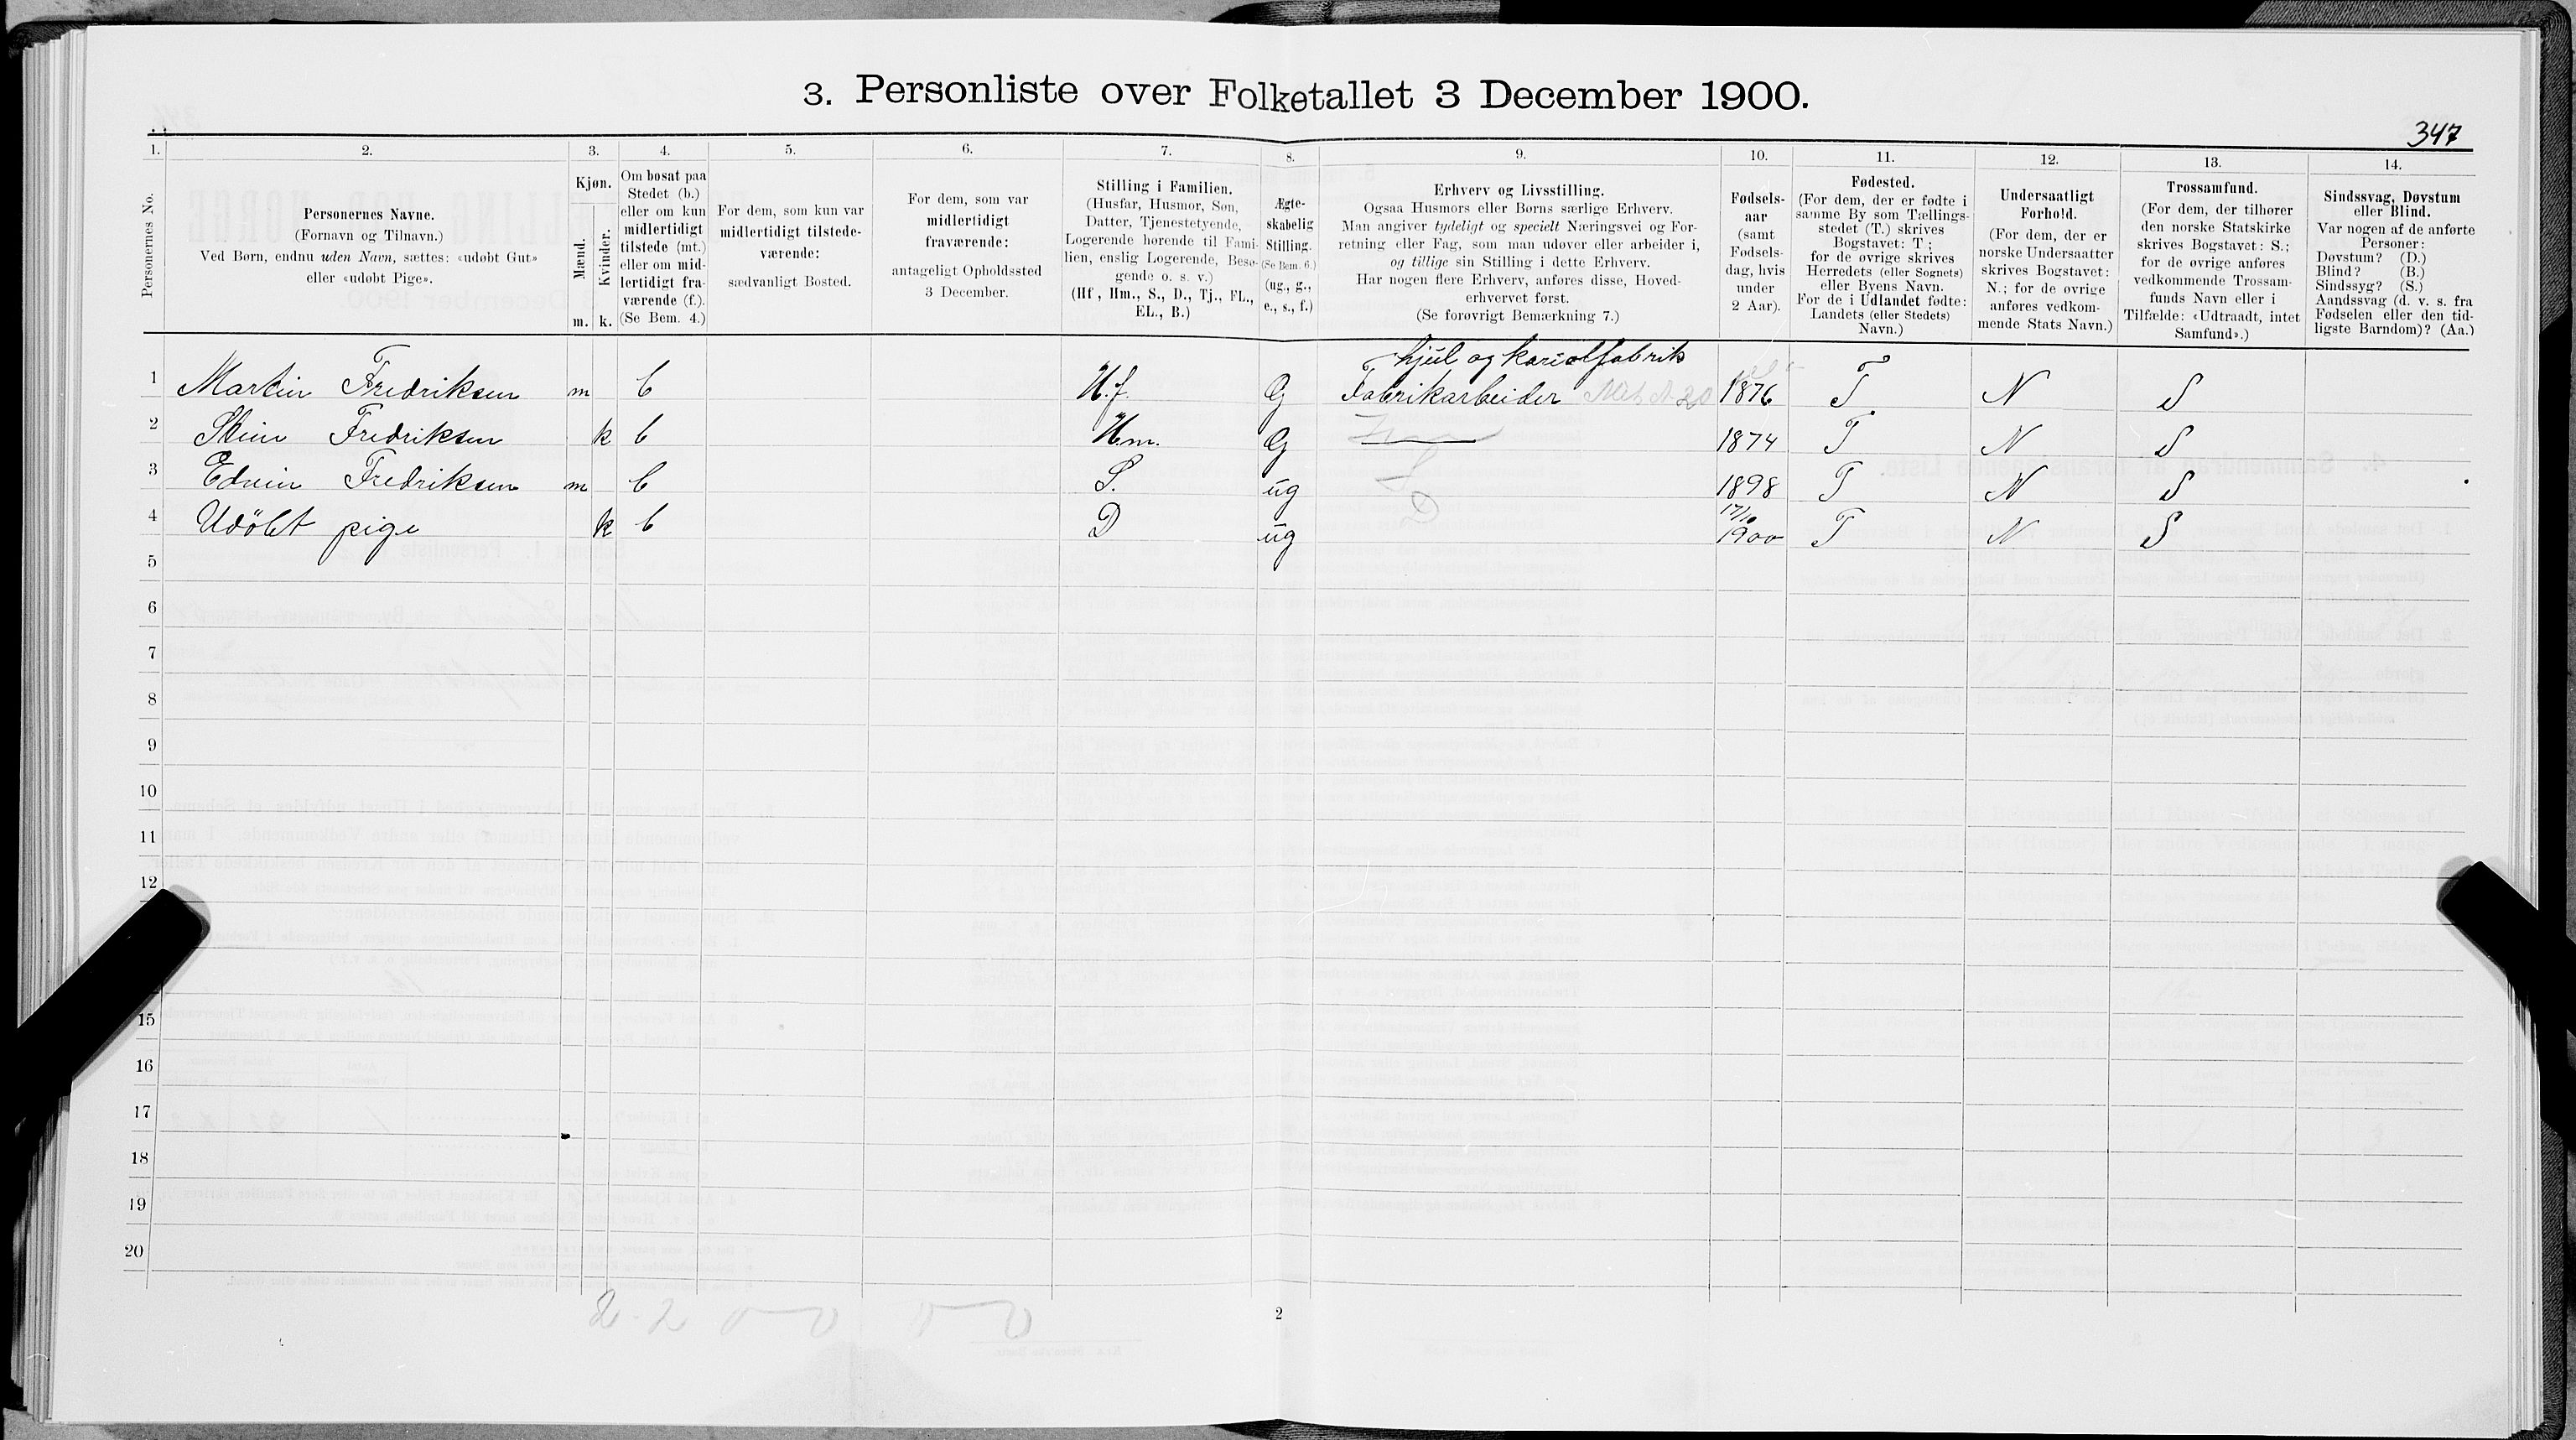 3. Personliste over Folketallet 3 December 1900.
347
1. 2. 3. 4. 5. 6. 7. 8. 9. 10. 11. 12. 13. 14.
Personernes No.
Personernes Navne.
(Fornavn og Tilnavn.)
Ved Børn, endnu uden Navn, sættes: «udøbt Gut»
eller «udøbt Pige».
Kjøn.
Mænd.
Kvinder.
m. k.
Om bosat paa
Stedet (b.)
eller om kun
midlertidigt
tilstede (mt.)
eller om mid-
lertidigt fra-
værende (f.).
(Se Bem. 4.)
For dem, som kun var
midlertidigt tilstede-
værende:
sædvanligt Bosted.
For dem, som var
midlertidigt
fraværende:
antageligt Opholdssted
3 December.
Stilling i Familien.
(Husfar, Husmor, Søn,
Datter, Tjenestetyende,
Logerende hørende til Fami-
lien, enslig Logerende, Besø-
gende o. s. v.)
(Hf, Hm., S., D., Tj., FL.,
EL., B.)
Ægte-
skabelig
Stilling.
(Se Bem. 6.)
(ug., g.,
e., s., f.)
Erhverv og Livsstilling.
Ogsaa Husmors eller Børns særlige Erhverv.
Man angiver tydeligt og specielt Næringsvei og For-
retning eller Fag, som man udøver eller arbeider i,
og tillige sin Stilling i dette Erhverv.
Har nogen flere Erhverv, anføres disse, Hoved-
erhvervet først.
(Se forøvrigt Bemærkning 7.)
Fødsels-
aar
(samt
Fødsels-
dag, hvis
under
2 Aar).
Fødested.
(For dem, der er fødte i
samme By som Tællings-
stedet (T.) skrives
Bogstavet: T;
for de øvrige skrives
Herredets (eller Sognets)
eller Byens Navn.
For de i Udlandet fødte:
Landets (eller Stedets)
Navn.)
Undersaatligt
Forhold.
(For dem, der er
norske Undersaatter
skrives Bogstavet:
N.; for de øvrige
anføres vedkom-
mende Stats Navn.)
Trossamfund.
(For dem, der tilhører
den norske Statskirke
skrives Bogstavet: S.;
for de øvrige anføres
vedkommende Trossam-
funds Navn eller i
Tilfælde: «Udtraadt, intet
Samfund».)
Sindssvag, Døvstum
eller Blind.
Var nogen af de anførte
Personer:
Døvstum? (D.)
Blind? (B.)
Sindssyg? (S.)
Aandssvag (d. v. s. fra
Fødselen eller den tid-
ligste Barndom)? (Aa.)
hjul og kariolfabrik
1 Martin Fredriksen m b H.f. G Fabrikarbeider 1876 T N S
2 Fredriksen k b Hm. G 1874 T N S
3 Edvin Fredriksen m b S. ug S 1898 T N S
4 Udöbt pige k b D ug D 17/10 1900 T N S
5
6
7
8
9
10
11
12
15
16
17
18
19
20
2 - 2
2